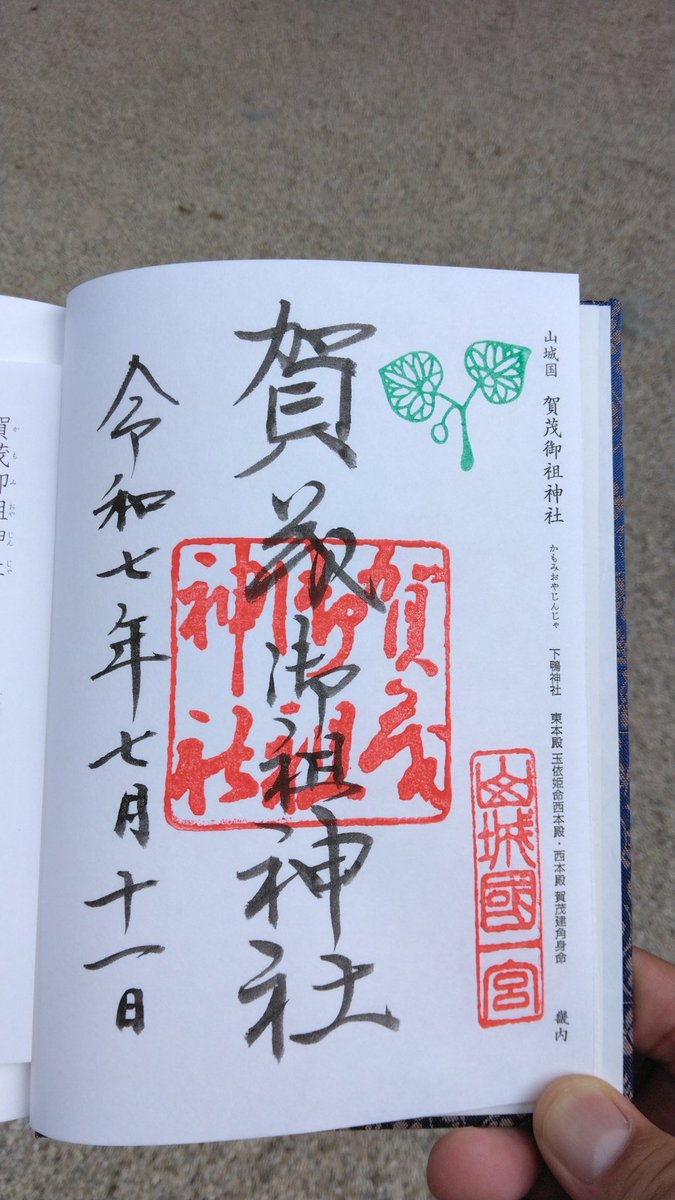 山城国 賀茂御祖神社 かもみおやじんじゃ 下鴨神社 東本殿 玉依姫命西本殿・西本殿 賀茂建角身命 畿内
山城國一宮
賀茂御祖神社
賀茂
御祖
神社
令和七年七月十一日
賀茂御祖神
かもみおやじんじゃ